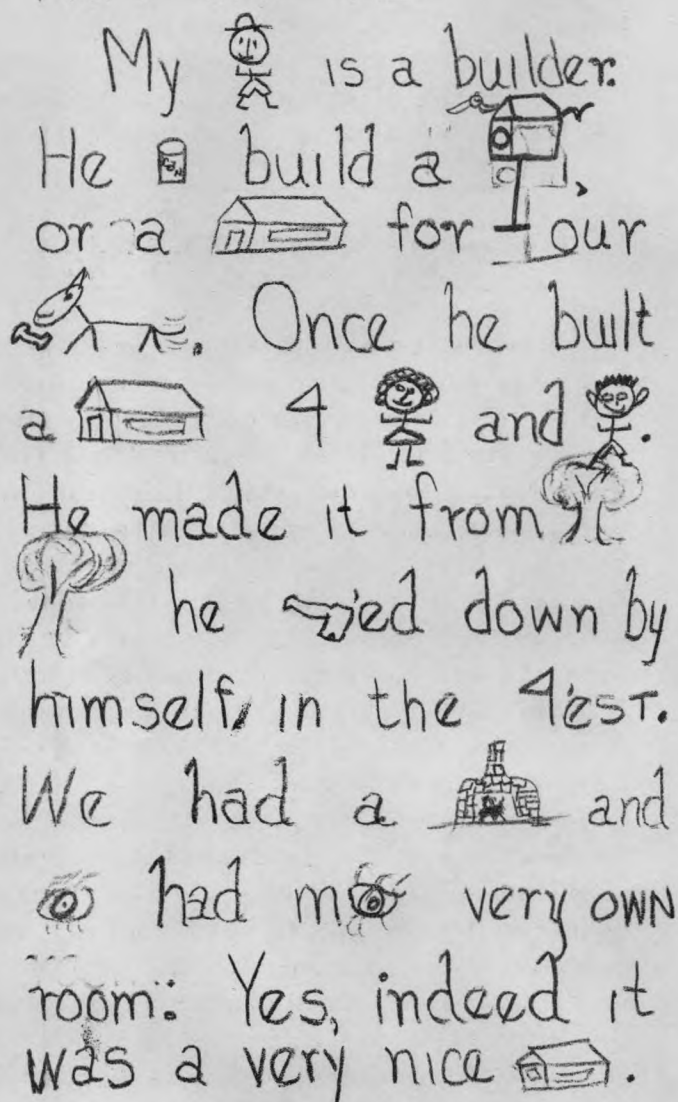 My is a builder.
He build a ,
or a for our
. Once he built
a 4 and .
He made it from
he 'ed down by
himself, in the 4'est.
We had a and
had m very own
room. Yes, indeed it
was a very nice .